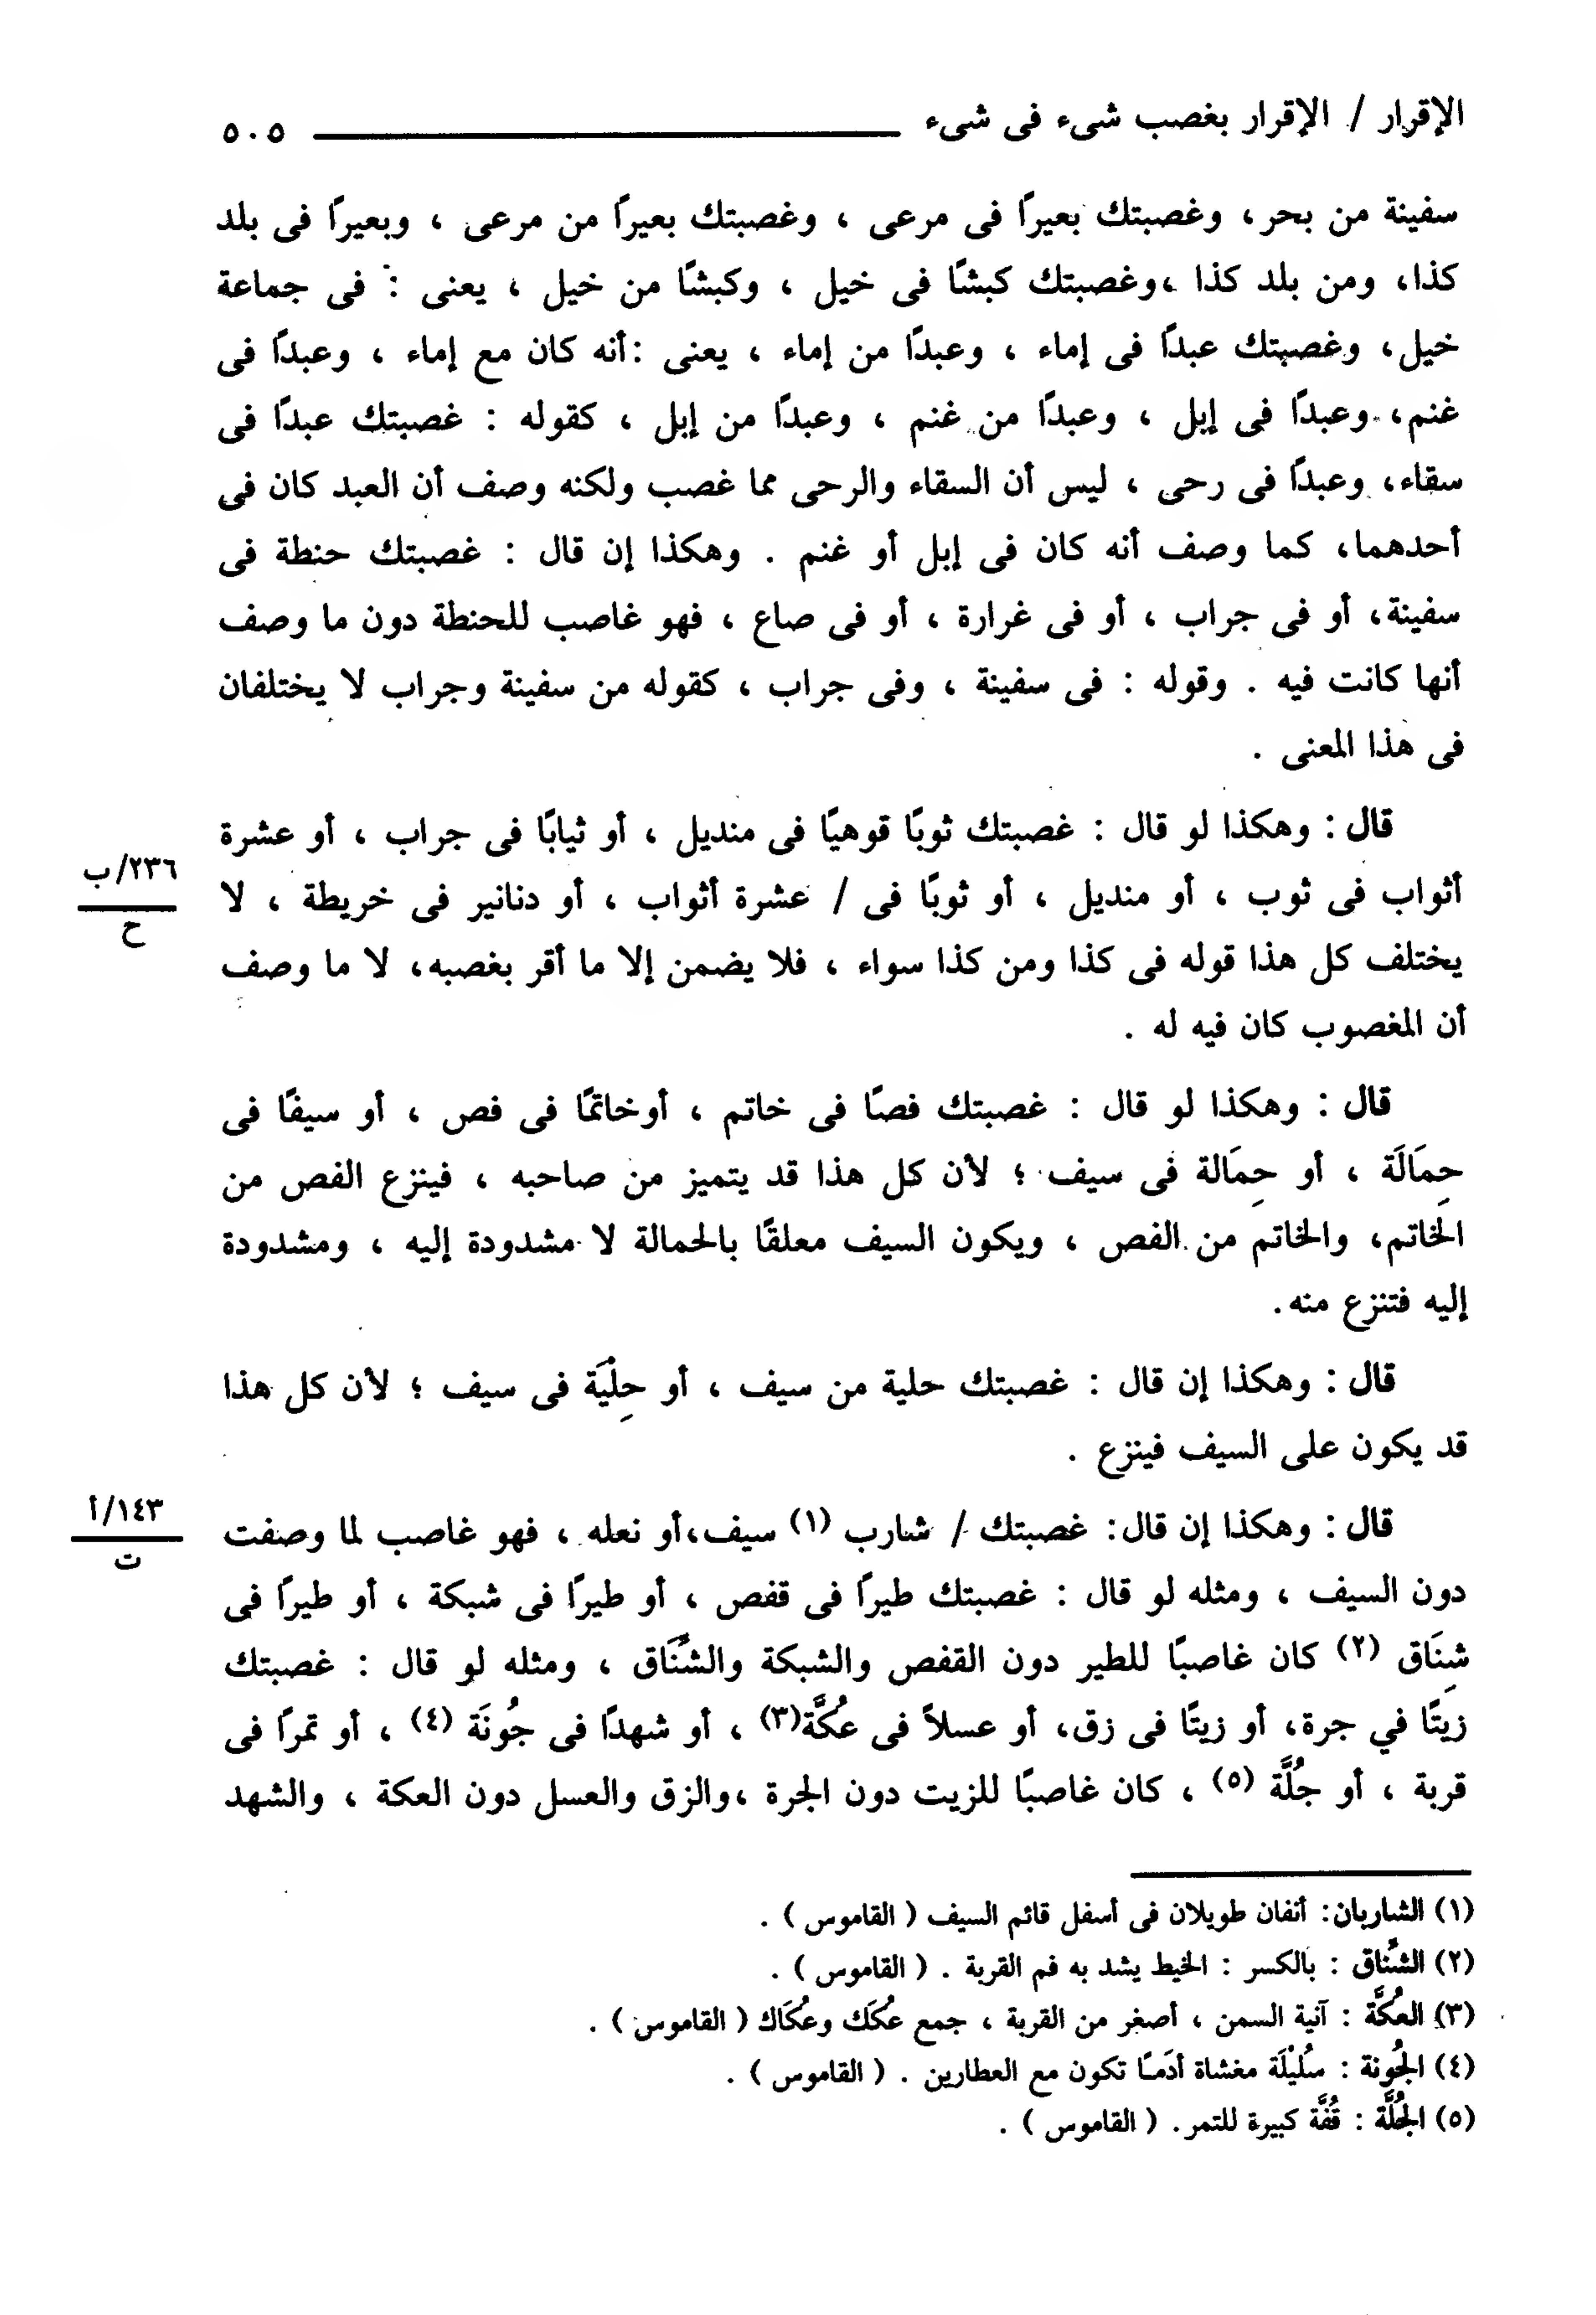 الإقرار / الإقرار بغصب شىء فى شىء ٥٠٥
سفينة من بحر، وغصبتك بعيرًا فى مرعى ، وغصبتك بعيرًا من مرعى ، وبعيرًا فى بلد
كذا، ومن بلد كذا ،وغصبتك كبشًا فى خيل ، وكبشًا من خيل ، يعنى : فى جماعة
خيل، وغصبتك عبدًا فى إماء ، وعبدًا من إماء ، يعنى :أنه كان مع إماء ، وعبدًا فى
غنم، وعبدًا فى إبل ، وعبدًا من غنم ، وعبدًا من إبل ، كقوله : غصبتك عبدًا فى
سقاء، وعبدًا فى رحى ، ليس أن السقاء والرحى مما غصب ولكنه وصف أن العبد كان فى
أحدهما، كما وصف أنه كان فى إبل أو غنم . وهكذا إن قال : غصبتك حنطة فى
سفينة، أو فى جراب ، أو فى غرارة ، أو فى صاع ، فهو غاصب للحنطة دون ما وصف
أنها كانت فيه . وقوله : فى سفينة ، وفى جراب ، كقوله من سفينة وجراب لا يختلفان
فى هذا المعنى .
قال : وهكذا لو قال : غصبتك ثوبًا قوهيًا فى منديل ، أو ثيابًا فى جراب ، أو عشرة
٢٣٦/ب
ح
أثواب فى ثوب ، أو منديل ، أو ثوبًا فى / عشرة أثواب ، أو دنانير فى خريطة ، لا
يختلف كل هذا قوله فى كذا ومن كذا سواء ، فلا يضمن إلا ما أقر بغصبه، لا ما وصف
أن المغصوب كان فيه له .
قال : وهكذا لو قال : غصبتك فصًا فى خاتم ، أوخاتمًا فى فص ، أو سيفًا فى
حِمَالَة ، أو حِمَالة فى سيف ؛ لأن كل هذا قد يتميز من صاحبه ، فينزع الفص من
الخاتم، والخاتم من الفص ، ويكون السيف معلقًا بالحمالة لا مشدودة إليه ، ومشدودة
إليه فتنزع منه.
قال : وهكذا إن قال : غصبتك حلية من سيف ، أو حِلْيَة فى سيف ؛ لأن كل هذا
قد يكون على السيف فينزع .
قال : وهكذا إن قال: غصبتك / شارب (١) سيف،أو نعله ، فهو غاصب لما وصفت
١٤٣/أ
ت
دون السيف ، ومثله لو قال : غصبتك طيرًا فى قفص ، أو طيرًا فى شبكة ، أو طيرًا فى
شِنَاق (٢) كان غاصبًا للطير دون القفص والشبكة والشَّنَاق ، ومثله لو قال : غصبتك
زيتًا في جرة، أو زيتًا فى زق، أو عسلاً فى عُكَّة(٣) ، أو شهدًا فى جُونَة (٤) ، أو تمرًا فى
قربة ، أو جُلَّة (٥) ، كان غاصبًا للزيت دون الجرة ،والزق والعسل دون العكة ، والشهد
(١) الشاربان: أنفان طويلان فى أسفل قائم السيف ( القاموس ) .
(٢) الشَّناق : بالكسر : الخيط يشد به فم القربة . ( القاموس ) .
(٣) العُكَّة : آنية السمن ، أصغر من القربة ، جمع عُكَك وعُكَاك ( القاموس ) .
(٤) الجُونة : سُلَيْلَة مغشاة أدَمًا تكون مع العطارين . ( القاموس ) .
(٥) الجُلَّة : قُفَّة كبيرة للتمر. ( القاموس ) .